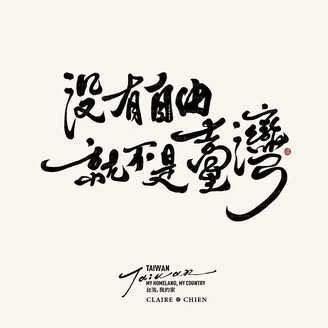 没有自由
就不是臺灣
TAIWAN
Taiwan
MY HOMELAND, MY COUNTRY
台灣, 我的家
CLAIRE CHIEN